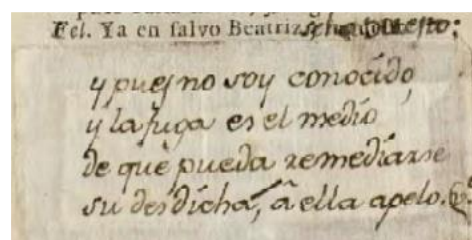 Fel. Ya en salvo Beatriz se ha puesto:
y pues no soy conocido,
y la fuga es el medio
de què pueda remediarse
su desdicha, â ella apelo.